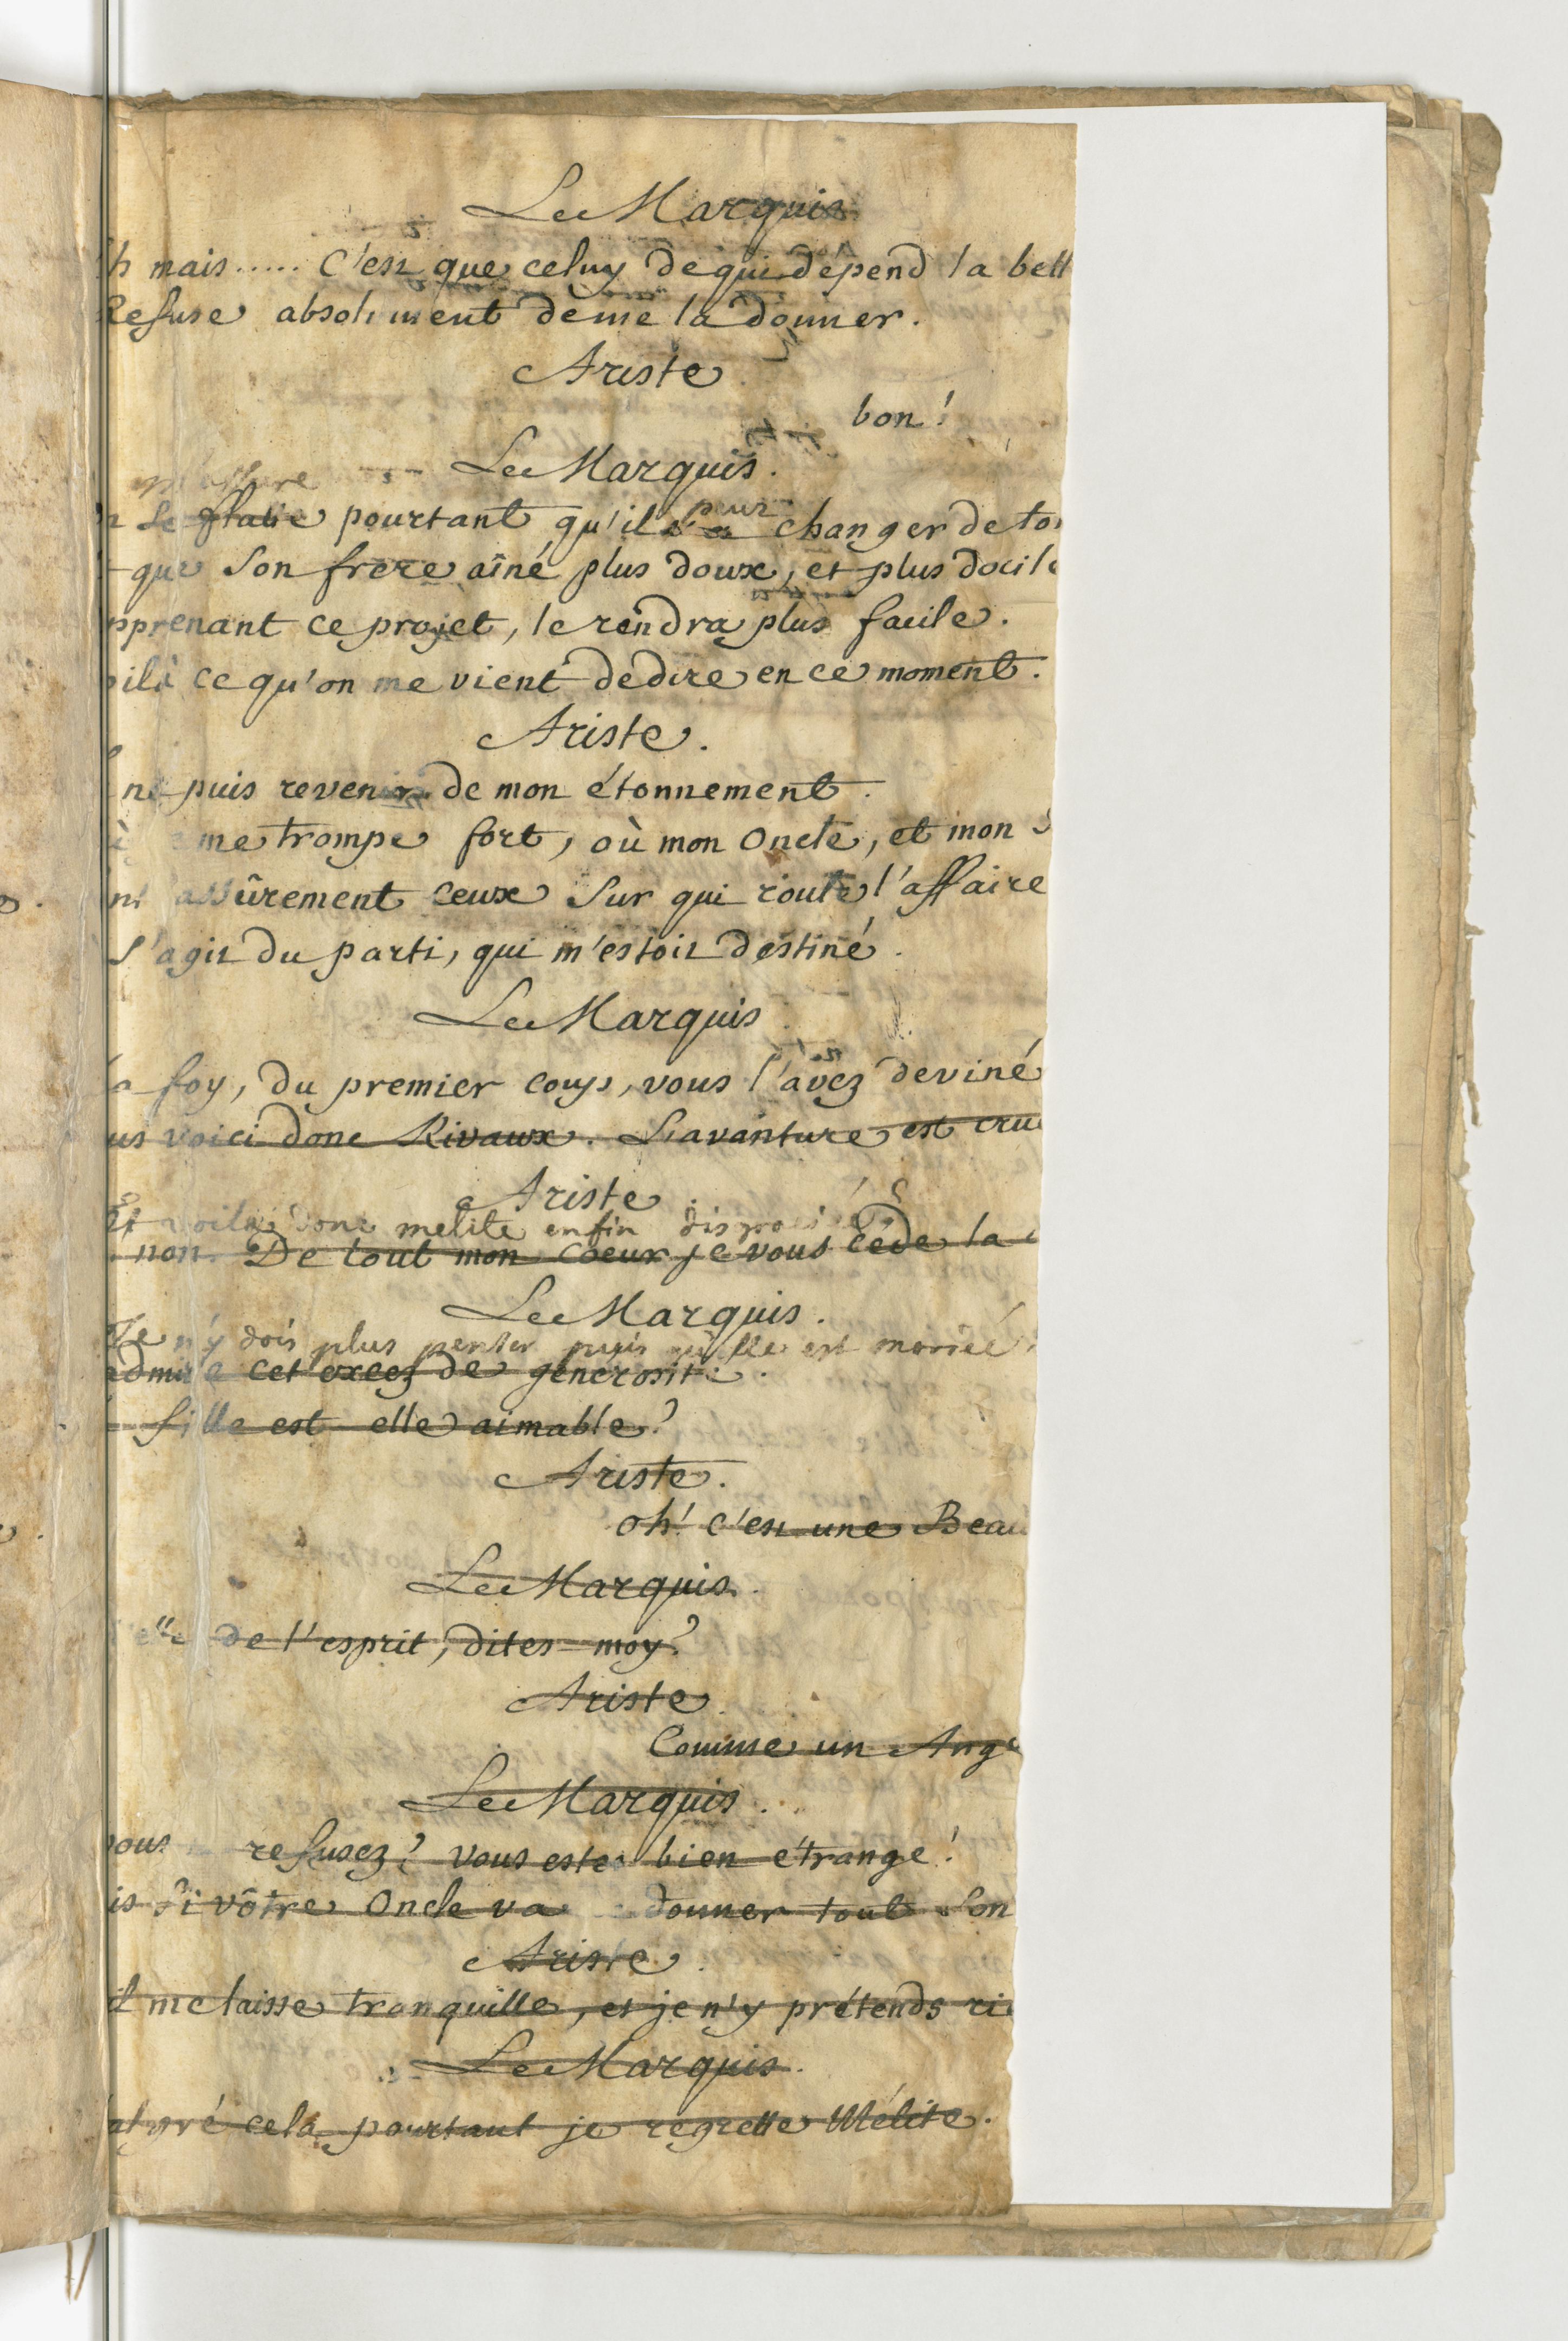 Le Marquis
h mais..... C'est que celuy de qui dépend la bell
Refuse absolument de me la donner.
Ariste
bon!
Le Marquis.
m'assure
Se flatte pourtant qu'il peut changer de to
que Son frere aîné plus doux, et plus docile
pprenant ce projet, le rendra plus facile.
ilà ce qu'on me vient de dire en ce moment.
Ariste.
ne puis revenir de mon étonnement.
me trompe fort, où mon Oncle, et mon
nt assûrement ceux Sur qui roule l'affaire
S'agit du parti, qui m'estoit destiné.
Le Marquis
a foy, du premier coup, vous l'avez deviné
us voici donc Rivaux. L'avanture est crue
Ariste
Et voila donc melite enfin
non. De tout mon coeur je vous cède la
Le Marquis.
Je n'y dois plus penser puis qu'elle est mariée
admire cet excez de generosité.
fille est-elle aimable?
Ariste.
oh! c'est une Beau
Le Marquis.
elle de l'esprit, dites-moy?
Ariste.
Comme un Ange
Le Marquis.
vous refusez? vous estes bien étrange!
is Si vôtre Oncle va donner tout Son
Ariste.
il me laisse tranquille, et je n'y prétends ri
Le Marquis.
algré cela pourtant je regrette Mélite.